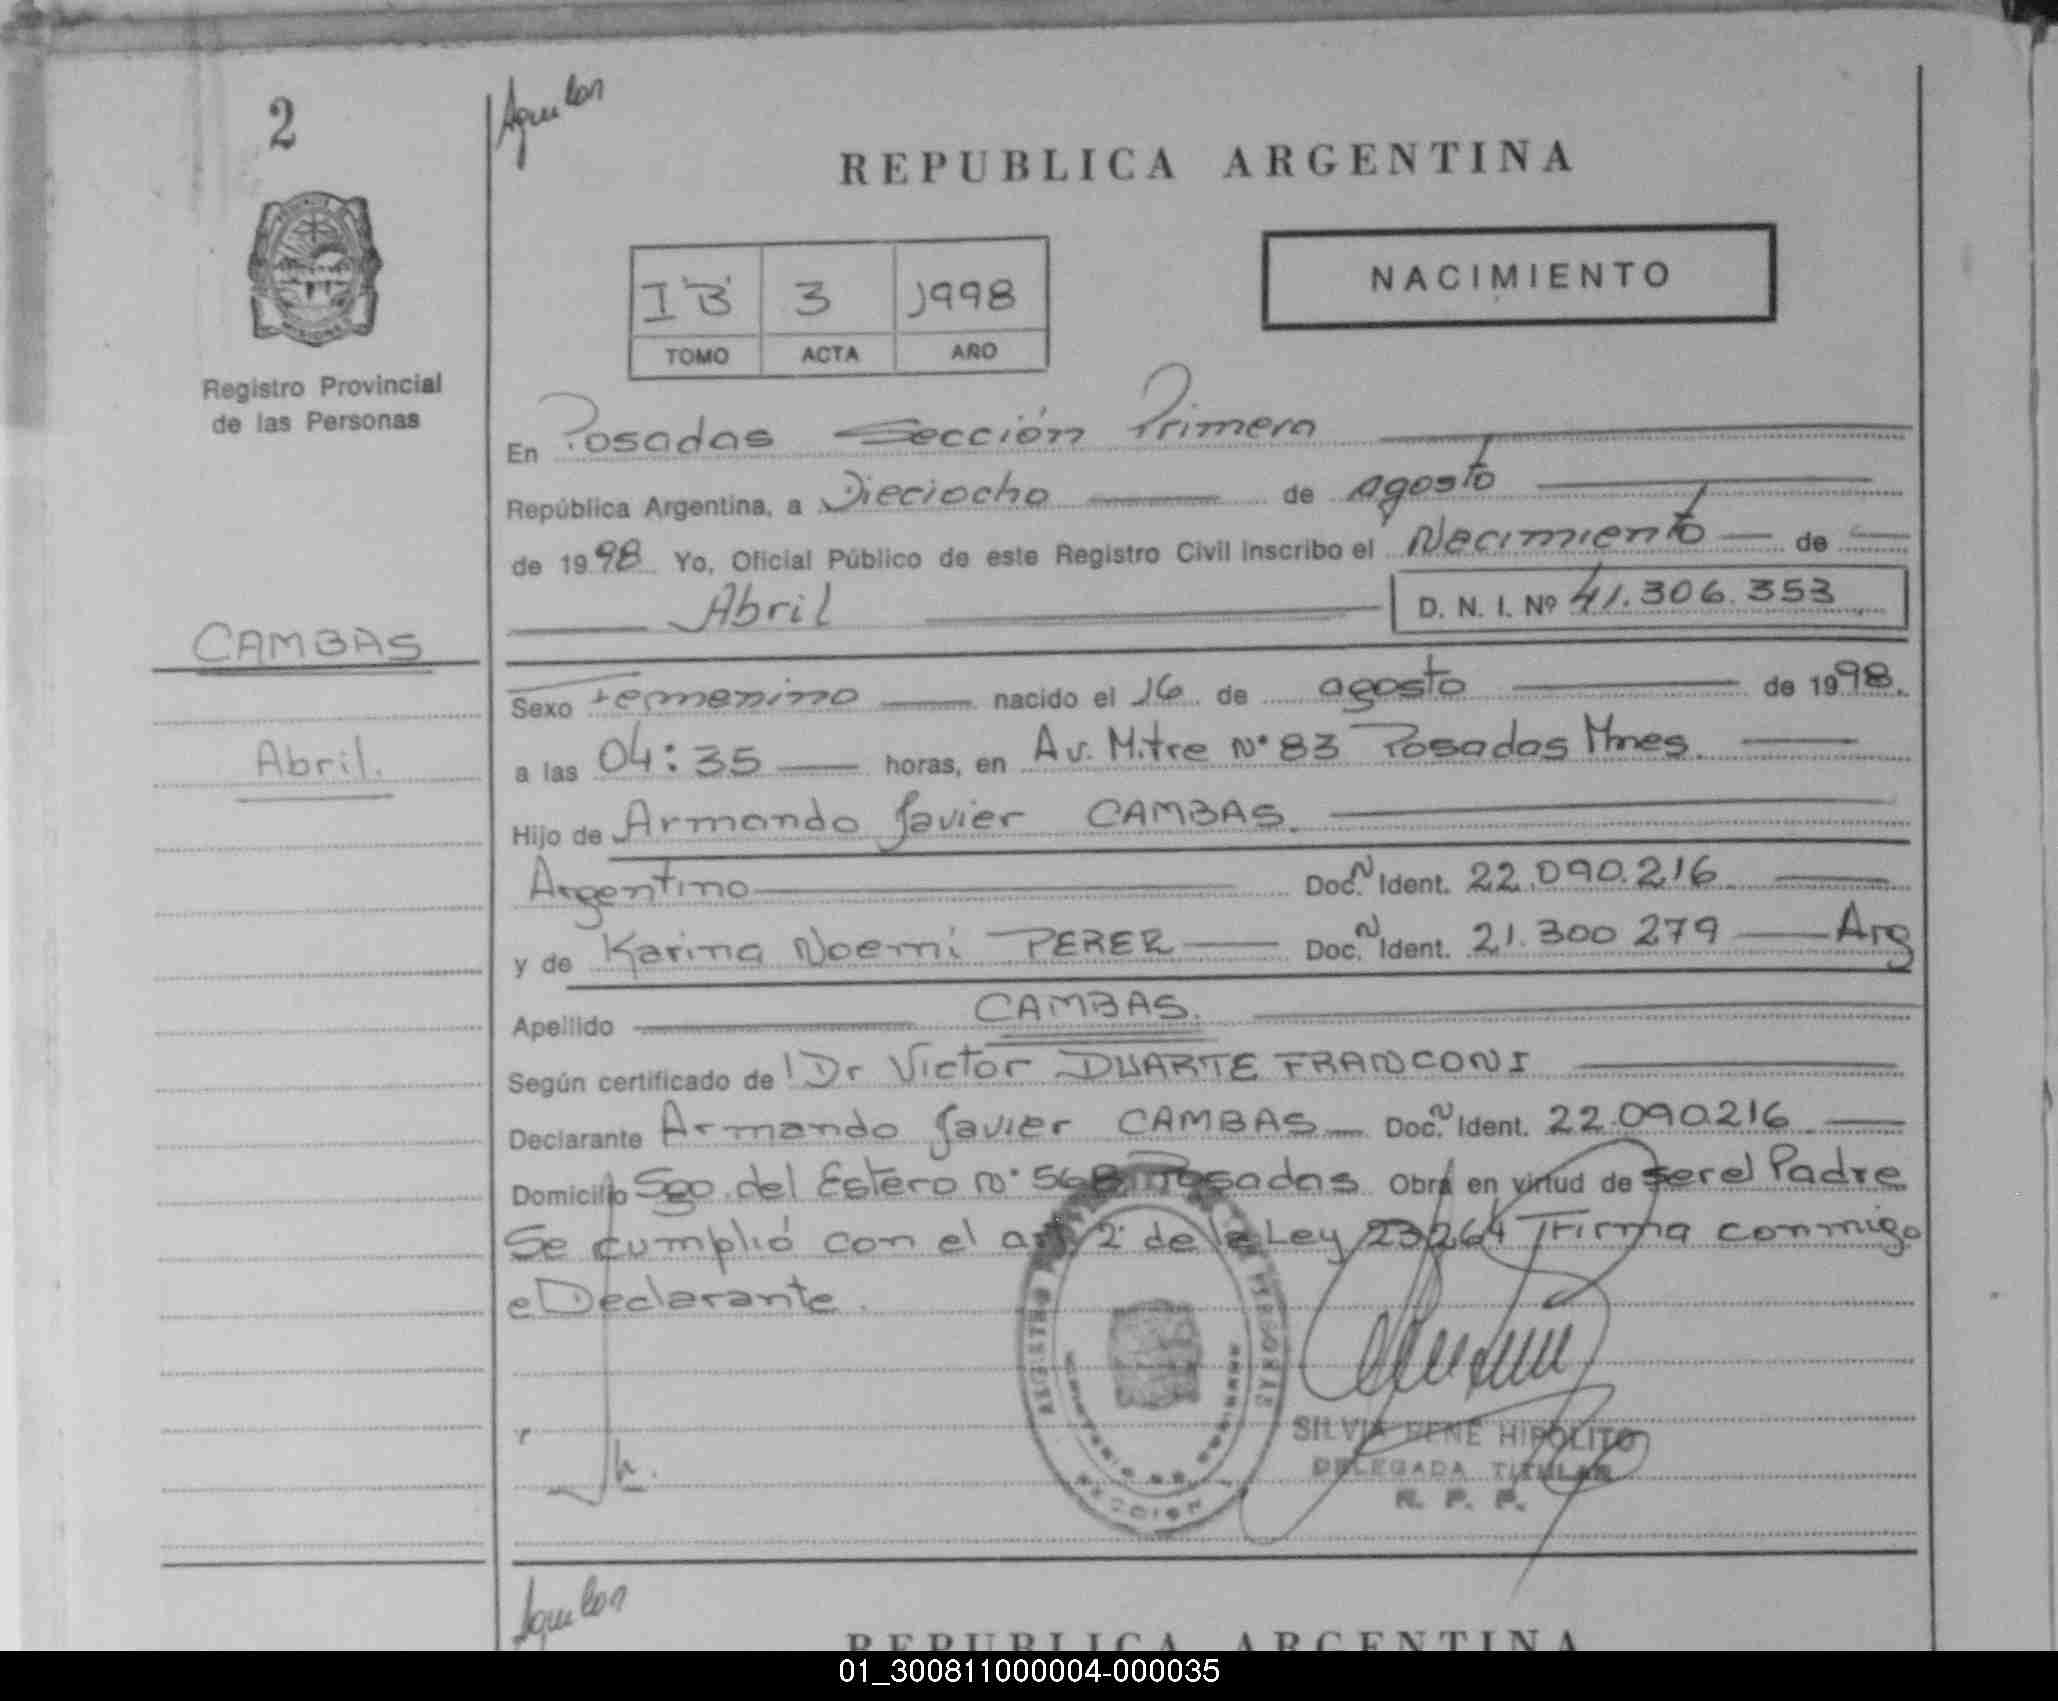 2
Aguilar
REPUBLICA ARGENTINA
NACIMIENTO
I "B" 3 1998
TOMO ACTA AÑO
Registro Provincial
de las Personas
En Posadas Sección Primera
República Argentina, a Dieciocho de agosto
de 1998 Yo, Oficial Público de este Registro Civil inscribo el Nacimiento de
Abril D. N. I. Nº 41.306.353
CAMBAS
Abril.
Sexo Femenino nacido el 16 de agosto de 1998.
a las 04:35 horas, en Av. Mitre Nº 83 Posadas Mnes.
Hijo de Armando Javier CAMBAS.
Argentino Doc. N Ident. 22.090.216
y de Karina Noemi PERER Doc. N Ident. 21.300 279 Arg
Apellido CAMBAS.
Según certificado de Dr Victor DUARTE FRANCONI
Declarante Armando Javier CAMBAS Doc. N Ident. 22.090216
Domicilio Sgo. del Estero Nº 568 Posadas Obra en virtud de ser el Padre
Se cumplió con el art. 2º de la Ley 23264 Firma conmigo
e Declarante.
REGISTRO PERSONAS
MINISTERIO DE GOBIERNO
SECCION 1
SILVIA RENE HIPOLITO
DELEGADA TITULAR
R. P. P.
REPUBLICA ARGENTINA
01_300811000004-000035